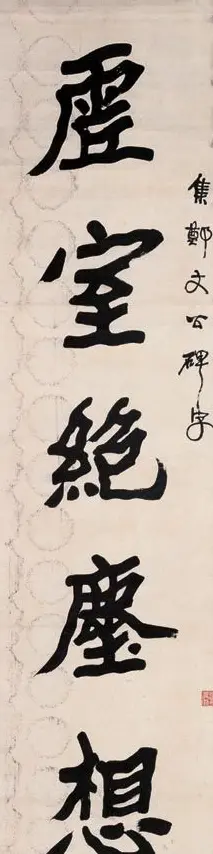 集鄭文公碑字
虛室絶塵想